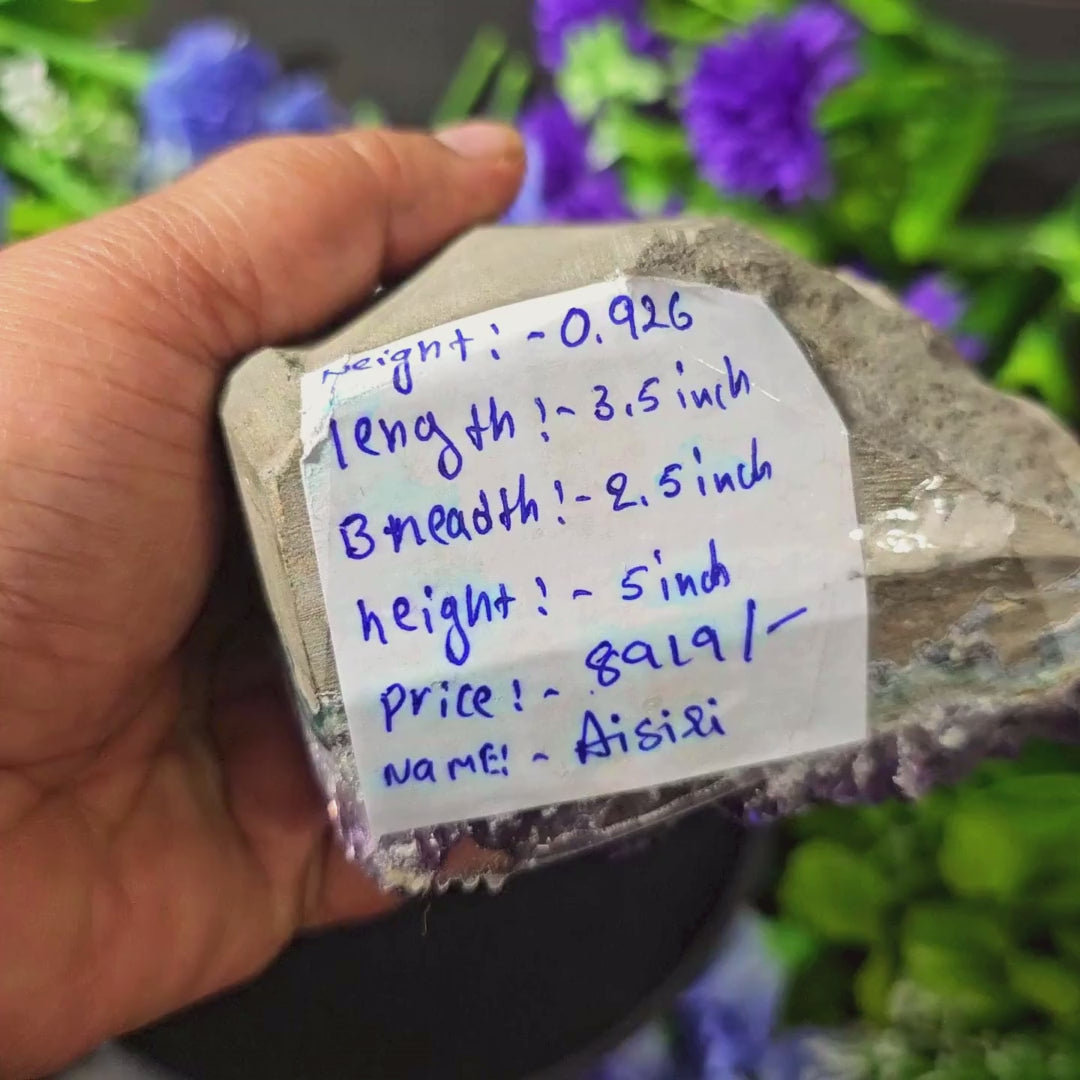 Weight:-0.926
length!- 3.5 inch
Breadth!- 2.5 inch
height!- 5 inch
Price!- 8919/-
NaME!- Aisiri